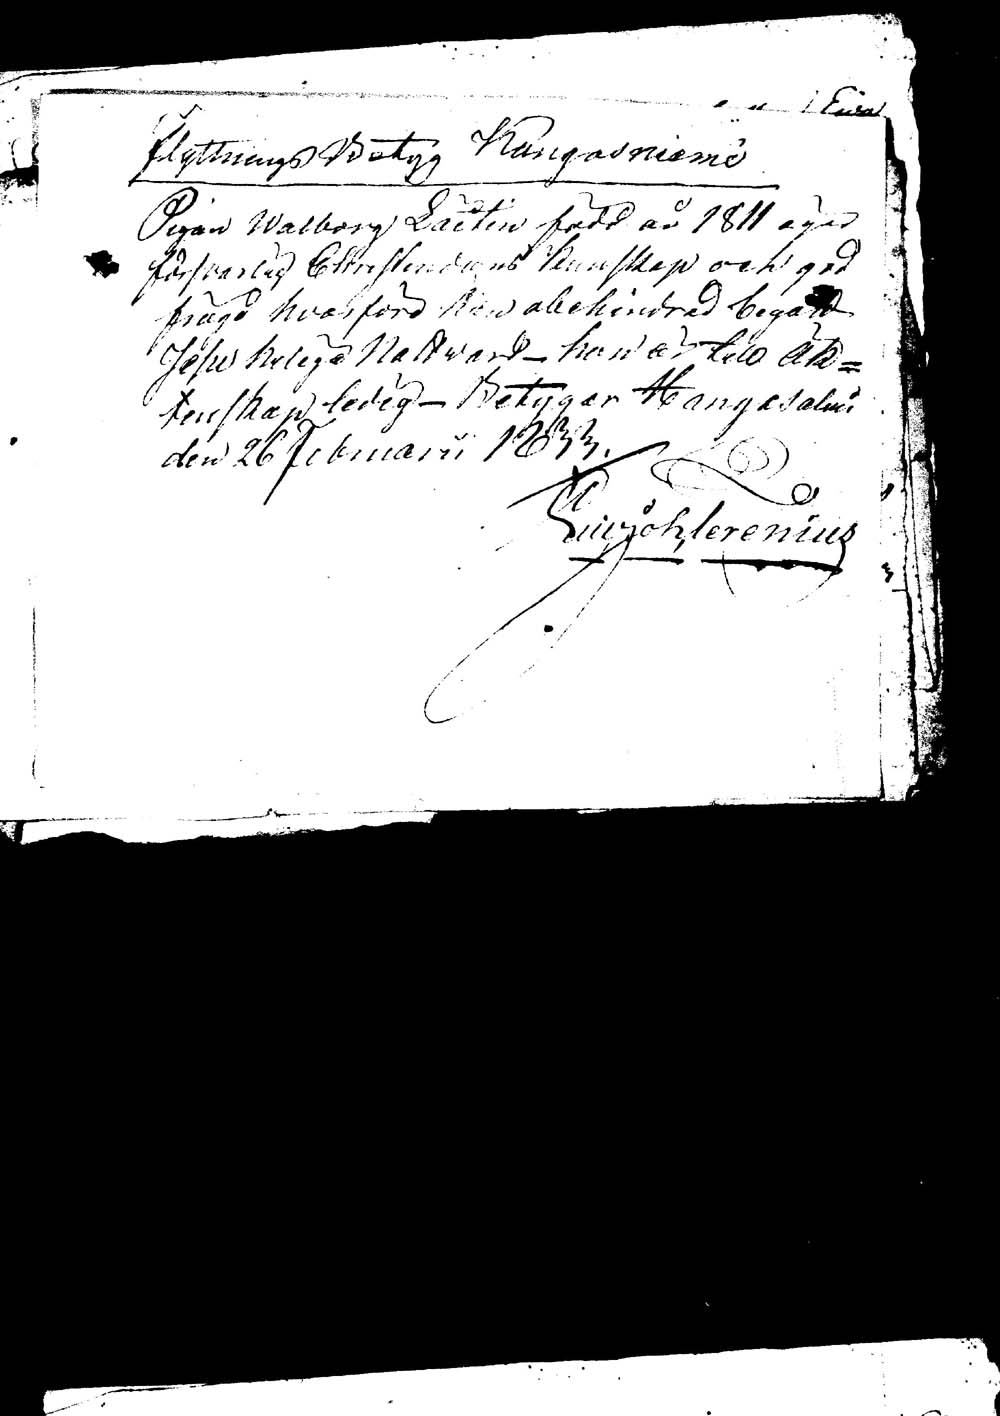 Flyttnings Betyg Kangasniemi
Pigan Walborg Laitin född år 1811 äger
försvarlig Christendoms kunskap och god
frägd hvarförd hon obehindrad begått
Jesu heliga Nattvard – hon är till äk=
tenskap ledig – Betygar Hangasalmi
den 26 Februarii 1833.